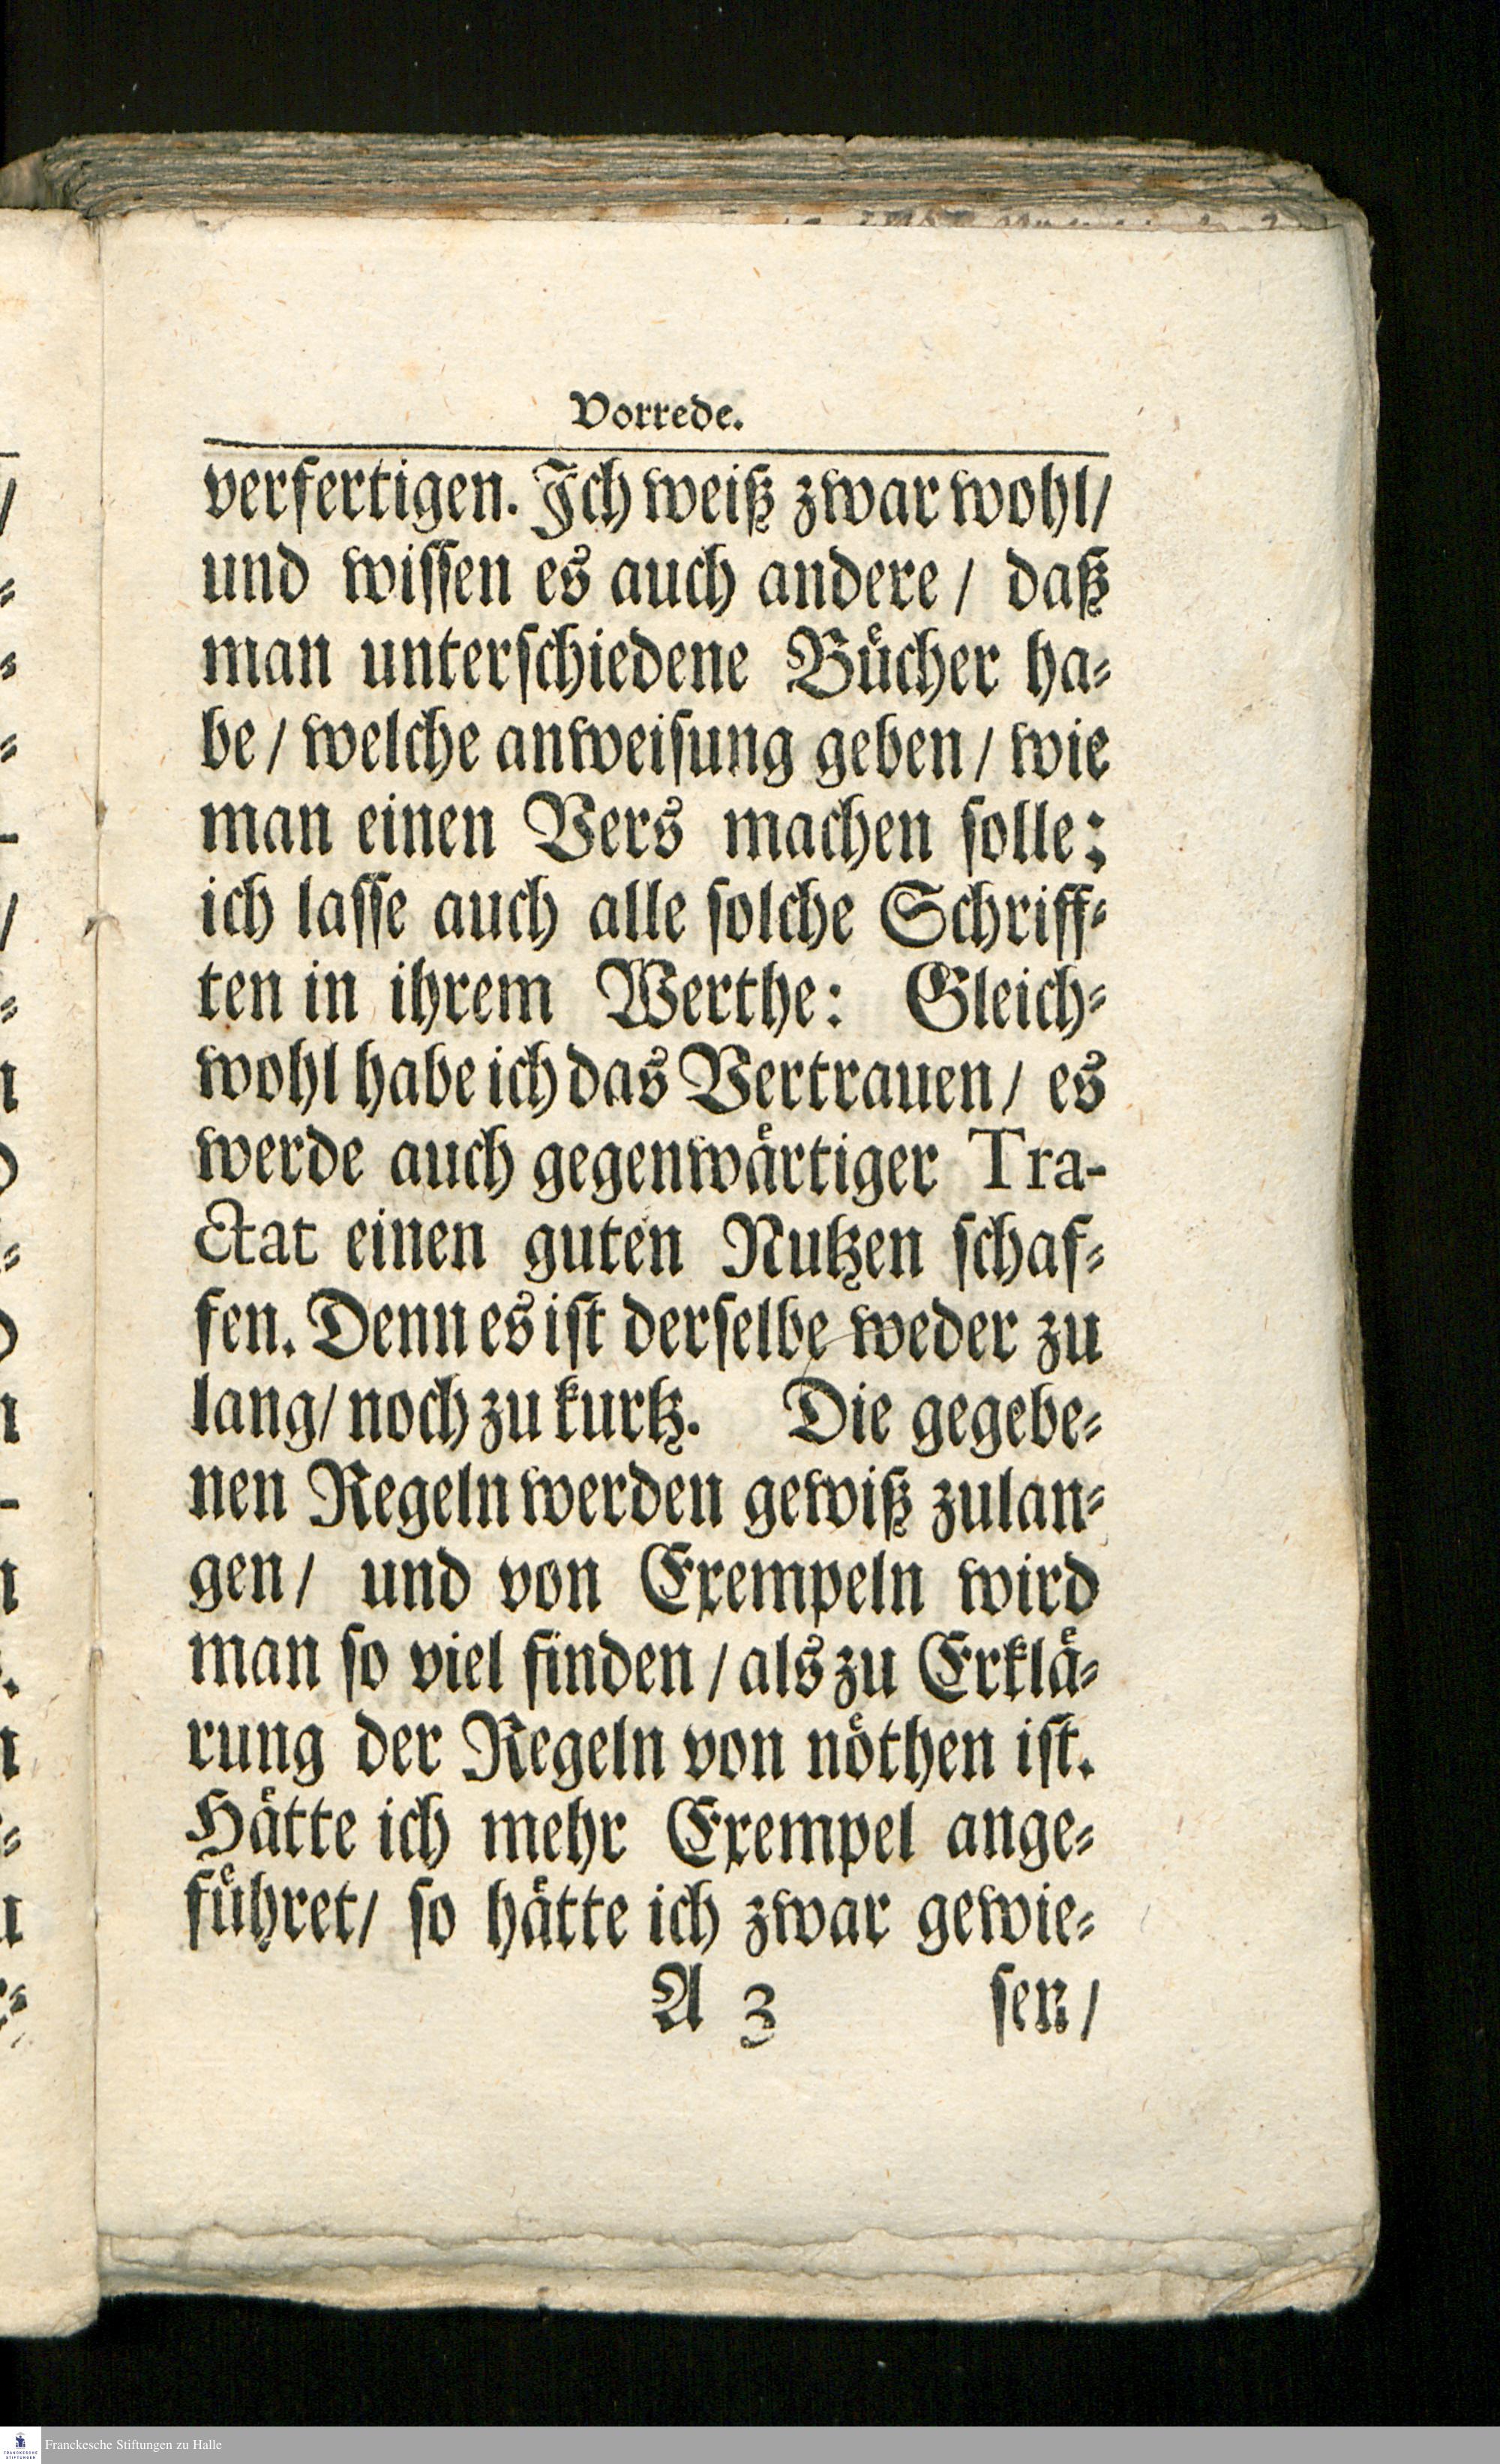 Vorrede.
verfertigen. Ich weiß zwar wohl/
und wissen es auch andere / daß
man unterschiedene Bücher ha-
be / welche anweisung geben / wie
man einen Vers machen solle;
ich lasse auch alle solche Schriff-
ten in ihrem Werthe: Gleich-
wohl habe ich das Vertrauen / es
werde auch gegenwärtiger Tra-
ctat einen guten Nutzen schaf-
fen. Denn es ist derselbe weder zu
lang / noch zu kurtz. Die gegebe-
nen Regeln werden gewiß zulan-
gen / und von Exempeln wird
man so viel finden / als zu Erklä-
rung der Regeln von nöthen ist.
Hätte ich mehr Exempel ange-
führet / so hätte ich zwar gewie-
A 3 sen /
Franckesche Stiftungen zu Halle